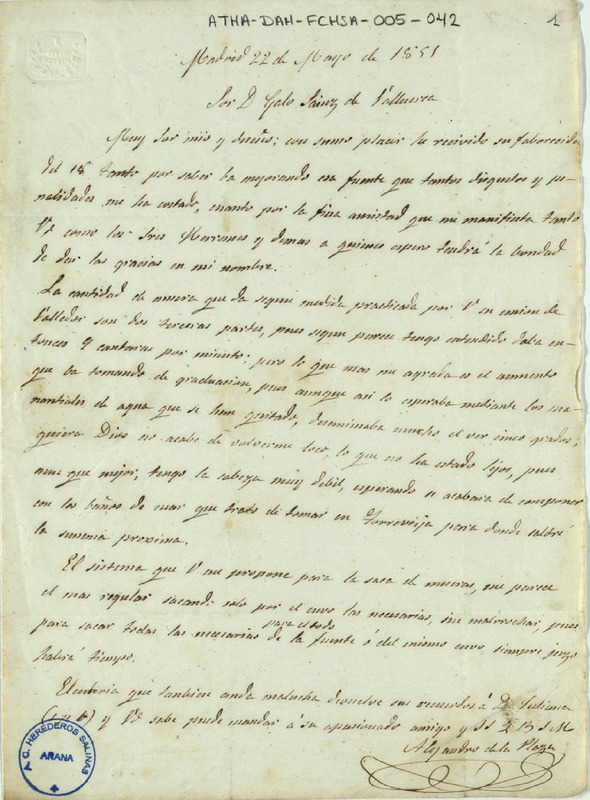 ATHA-DAH-FCHSA-005-042
1
Madrid 22 de Mayo de 1851
Sor D Galo Sainz de Valluerca
Muy Sor mio y dueño; con sumo placer he recivido su faborecida
del 18 tanto por saber ba mejorando esa fuente que tantos disgustos y pe-
nalidades me ha costado, cuanto por la fina amistad que me manifiesta tanto
Vd como los Sres Herranes y demas a quienes espero tendrá la bondad
de dar las gracias en mi nombre.
La cantidad de muera que da segun medida practicada por V en union de
Vallador son dos terceras partes, pues segun parece tengo entendido daba en-
tonces 9 cantaras por minuto; pero lo que mas me agrada es el aumento
que ba tomando de graduacion, pues aunque asi lo esperaba mediante los ma-
nantiales de agua que se han quitado, desanimaba mucho el ver cinco grados;
quiera Dios no acabe de volverme loco, lo que no ha estado lejos, pues
aun que mejor, tengo la cabeza muy debil, esperando se acabara de componer
con los baños de mar que trato de tomar en Torrevieja para donde saldré
la semana proxima.
El sistema que V me propone para la saca de mueras, me parece
el mas regular sacando solo por el cuvo las necesarias, sin malrrochar, pues
para sacar todas las necesarias para el todo de la fuente ó del mismo cuvo, siempre juzgo
habrá tiempo.
que tambien anda malucha devuelve sus recuerdos á Da Juliana
y Vd sabe puede mandar á su apasionado amigo y SS Q B S M
Alejandro de la Plaza
A.C. HEREDEROS SALINAS
ARANA